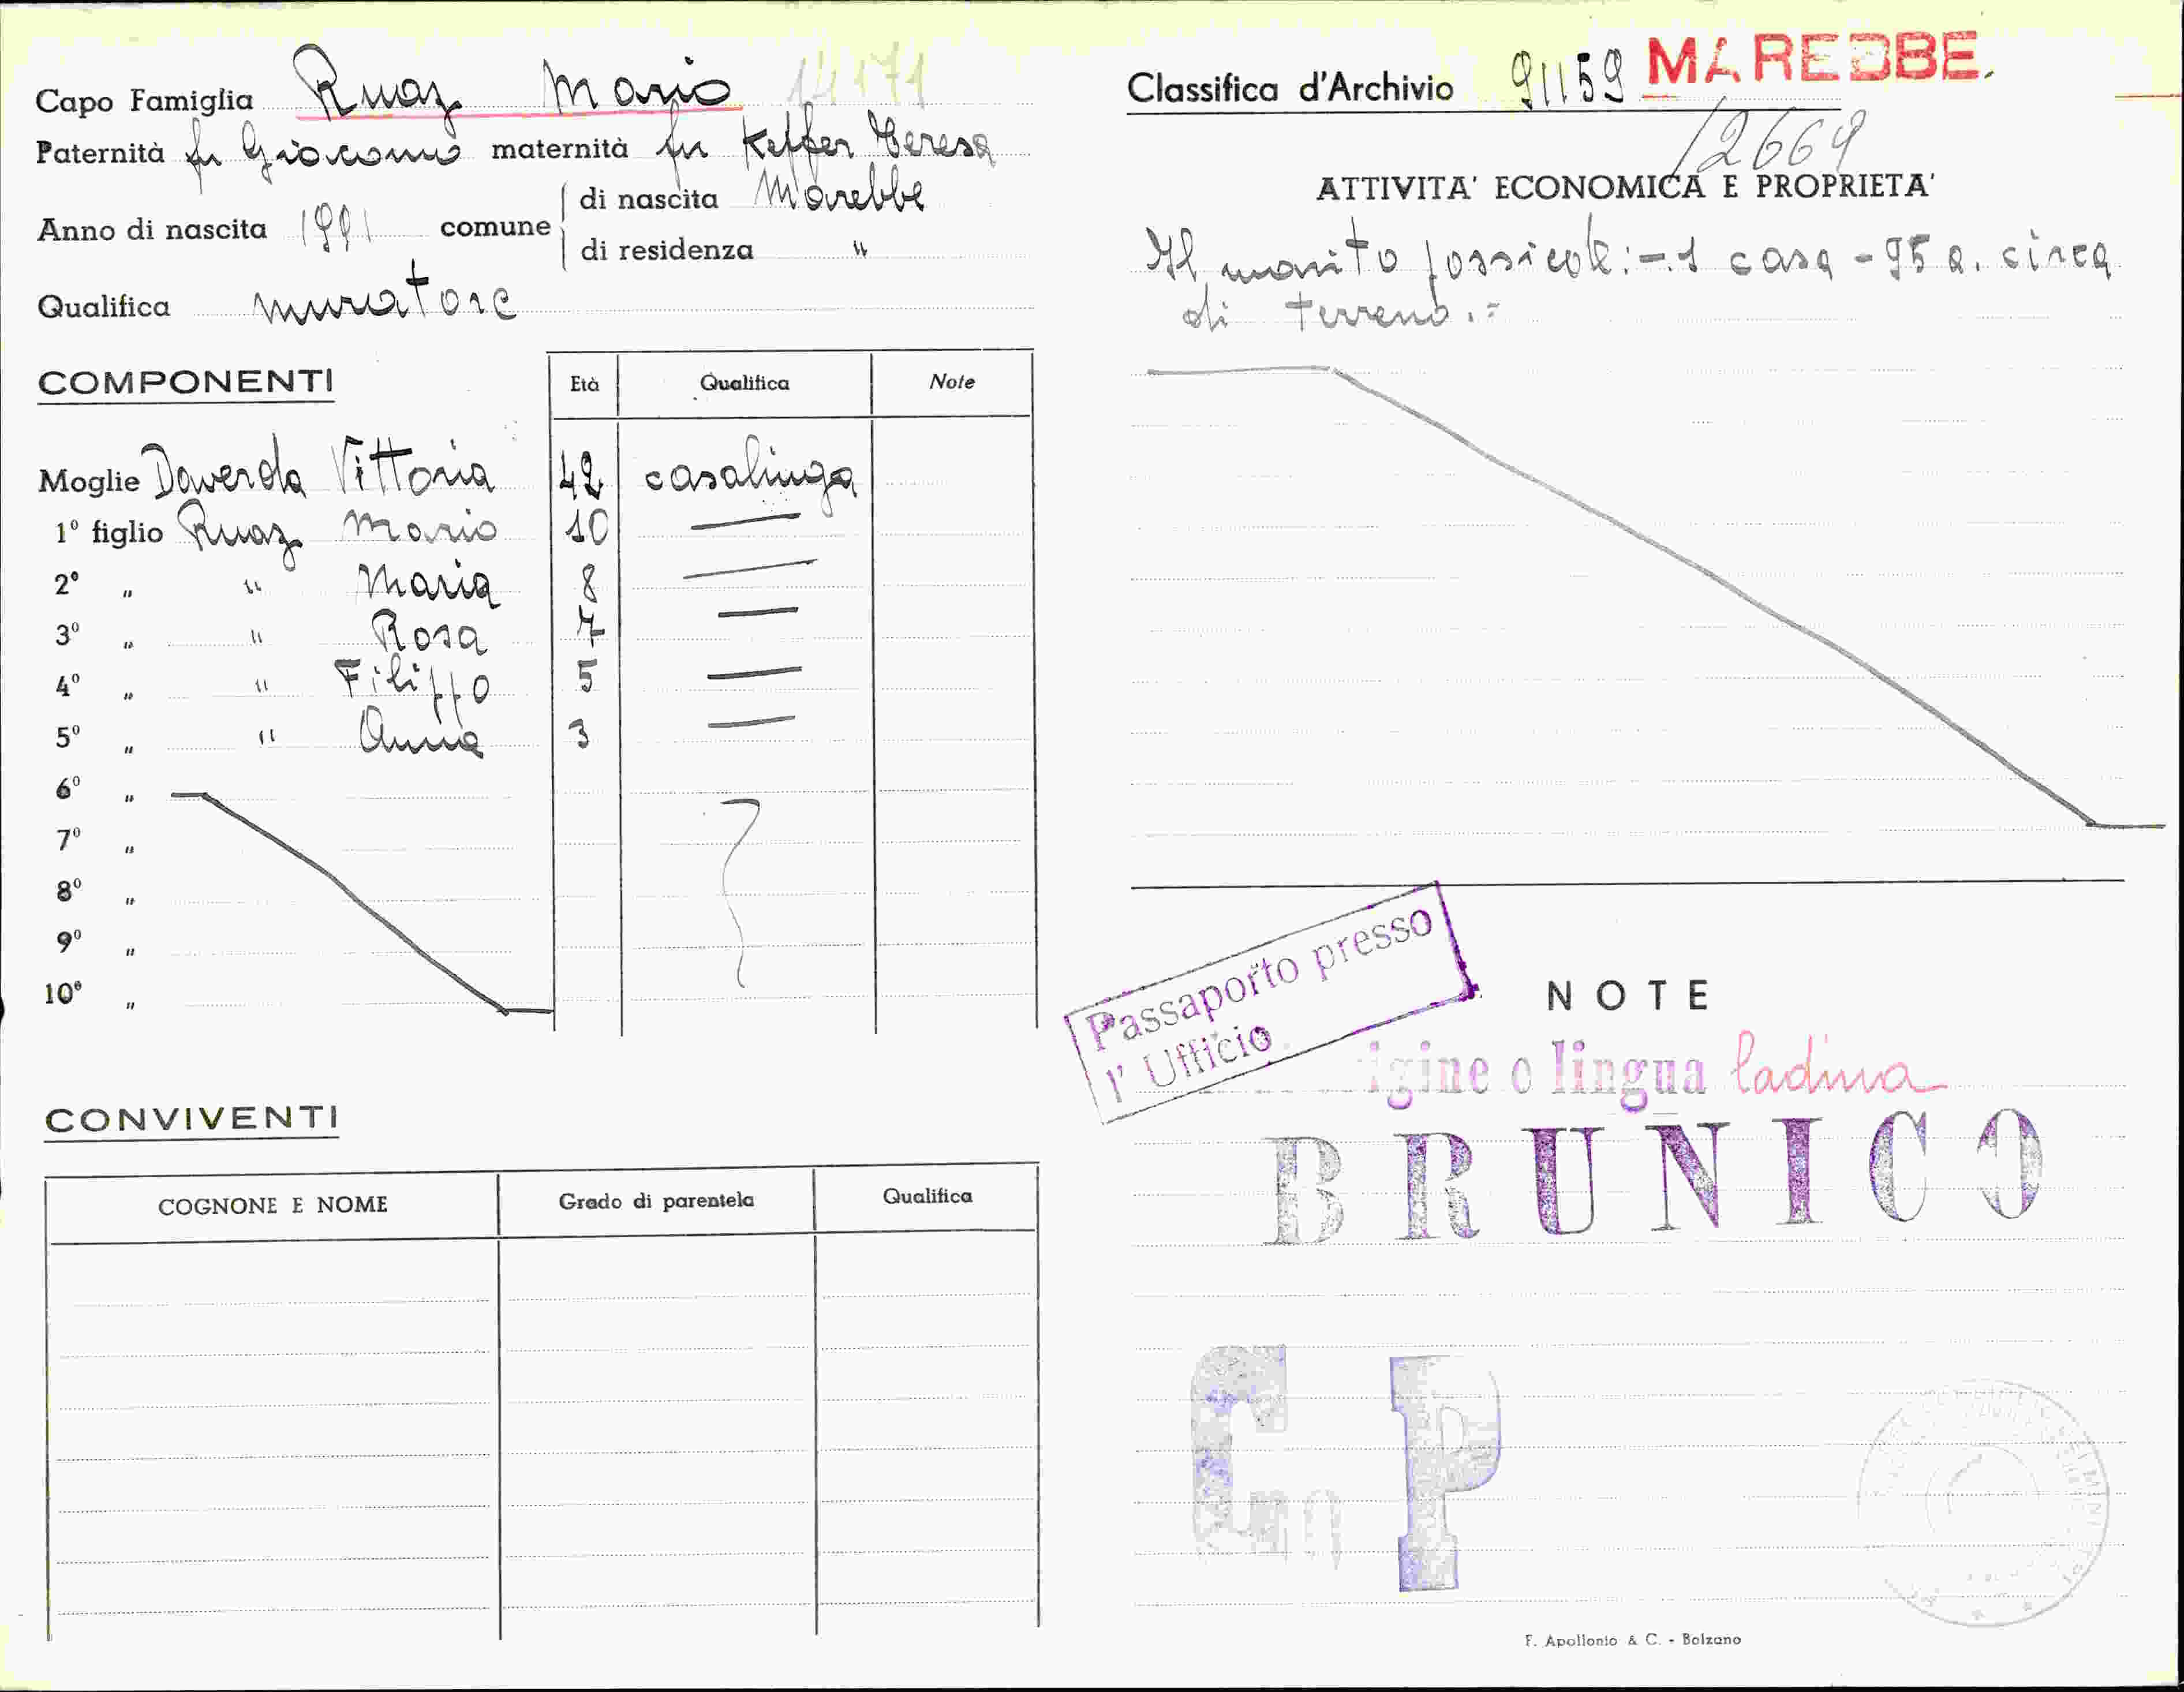 Capo Famiglia Ruaz Mario
Paternità fu Giacomo maternità fu Keffer Teresa
Anno di nascita comune di nascita Marebbe
di residenza "
Qualifica muratore
COMPONENTI Età Qualifica Note
Moglie Daverda Vittoria 42 casalinga
1º figlio Ruaz Mario 10
2º " " Maria 8
3º " " Rosa 7
4º " " Filippo 5
5º " " Anna 3
6º "
7º "
8º "
9º "
10º "
CONVIVENTI
COGNONE E NOME Grado di parentela Qualifica
Classifica d'Archivio 91159 MAREBBE.
12669
ATTIVITA' ECONOMICA E PROPRIETA'
Il marito possiede:-.1 casa - 95 a. circa
di terreno.=
Passaporto presso
l' Ufficio
NOTE
igine o lingua ladina
BRUNICO
P
F. Apollonio & C. - Bolzano